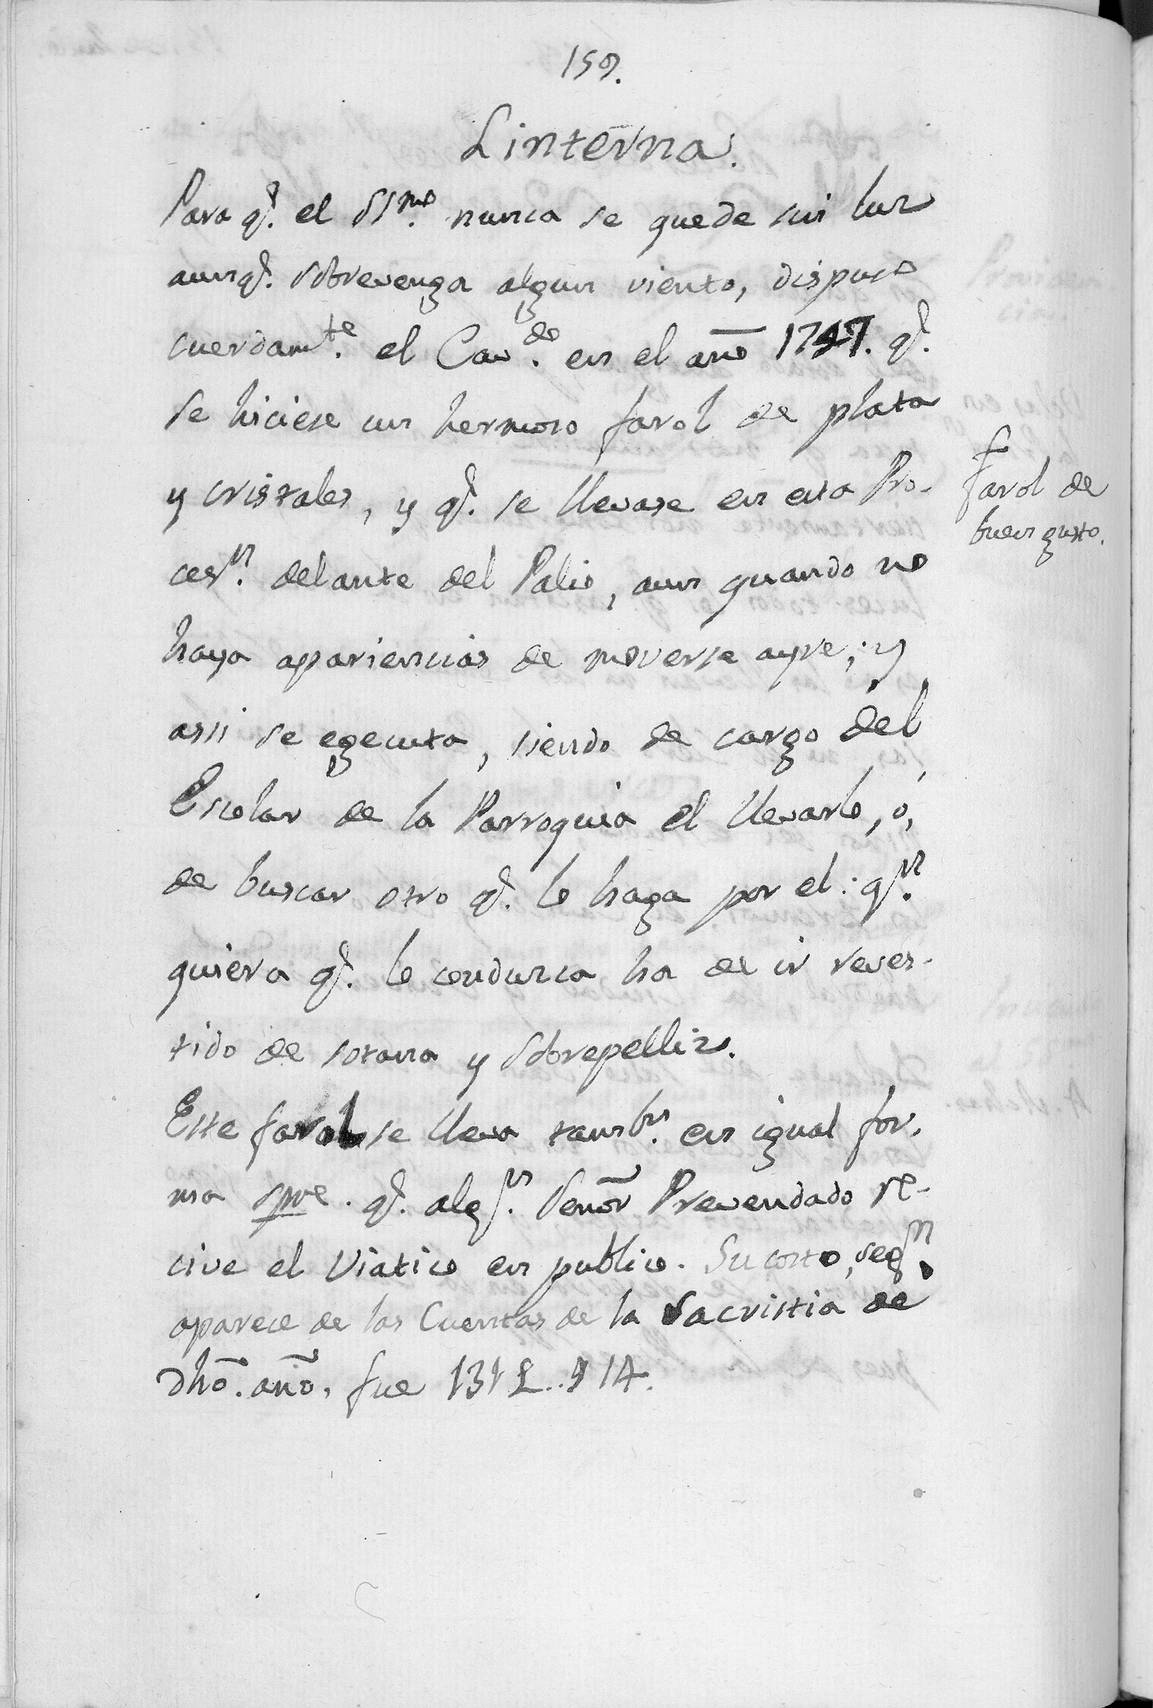 159.
Linterna.
Para q.e el SS.mo nunca se quede sin luz
aunq.e sobrevenga algun viento, dispuso
cuerdam.te el Cav.do en el año 1747. q.e
se hiciese un hermoso farol de plata
y cristales, y q.e se llevase en esta Pro-
ces.n delante del Palio, aun quando no
haya apariencias de moverse ayre; y
assi se egecuta, siendo de cargo del
Escolar de la Parroquia el llevarlo, ó,
de buscar otro q.e lo haga por el: q.n
quiera q.e lo conduzca ha de ir reves-
tido de sotana y sobrepelliz.
Este farol se lleva tamb.n en igual for-
ma spre. q.e alg.n Señor Prevendado re-
cive el Viatico en publico. Su costo, seg.n
aparece de las Cuentas de la Sacristia de
dhõ. año, fue 131 L.. 14.
Farol de
buen gusto.